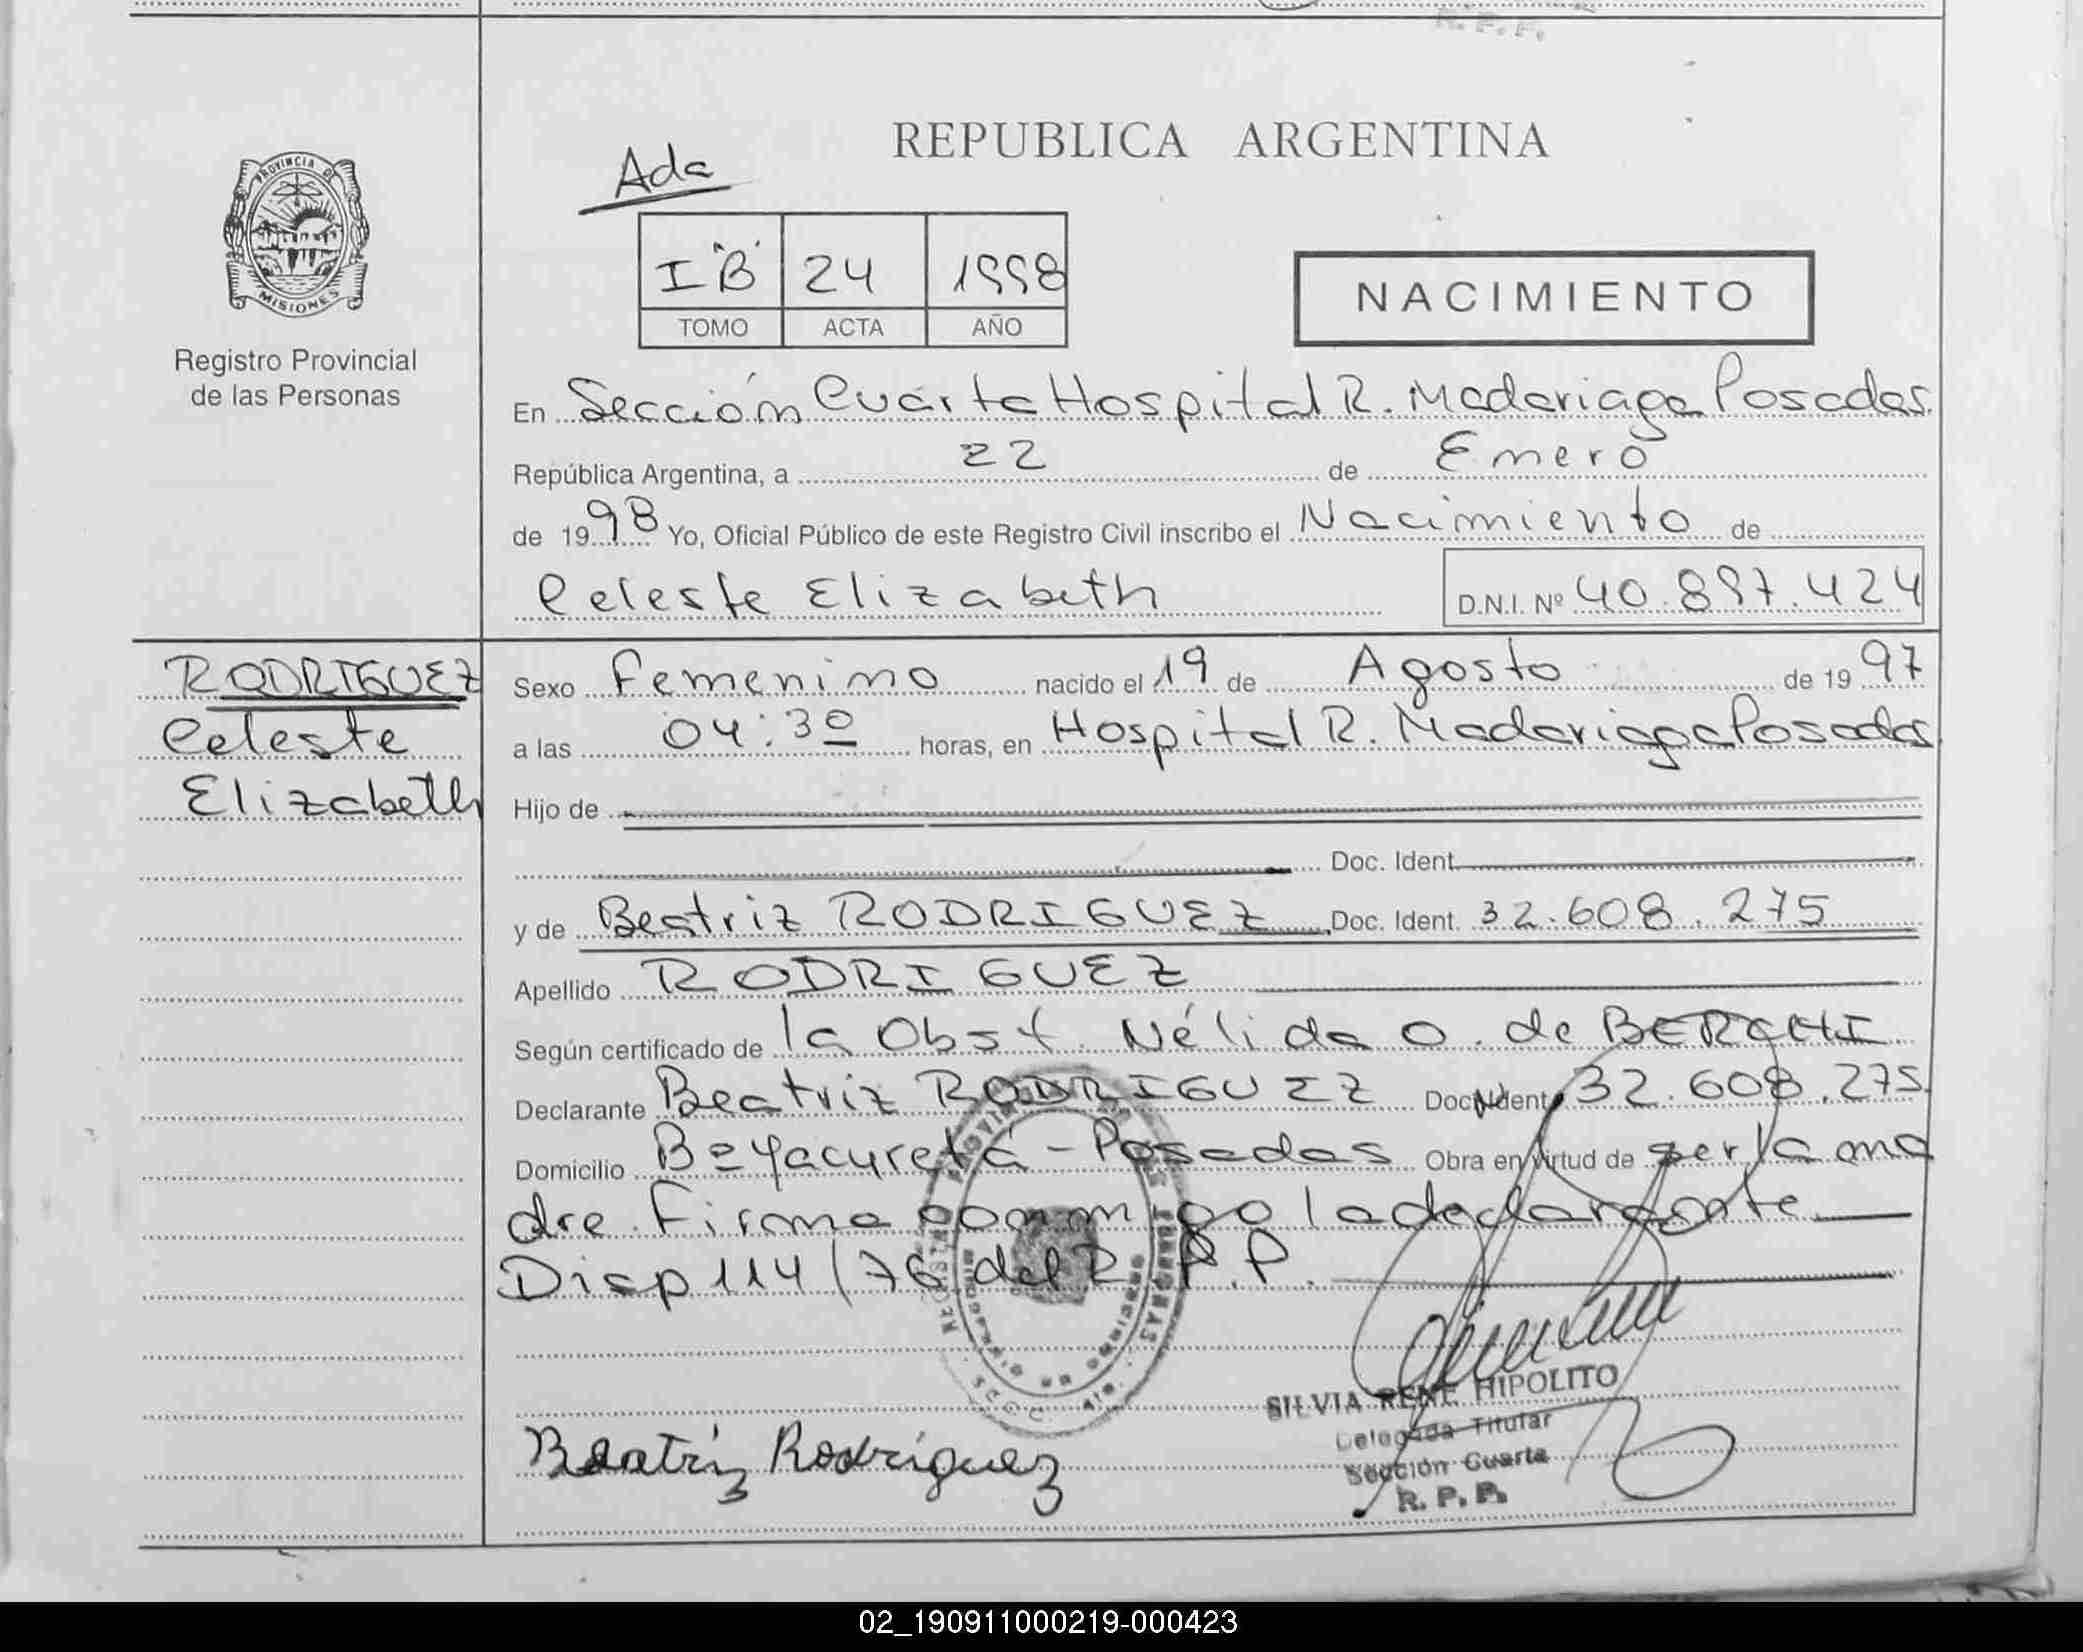 R. P. P.
PROVINCIA DE
MISIONES
Registro Provincial
de las Personas
REPUBLICA ARGENTINA
Ada
I "B" 24 1998
TOMO ACTA AÑO
NACIMIENTO
En Sección Cuarta Hospital R. Madariaga Posadas.
República Argentina, a 22 de Enero
de 1998 Yo, Oficial Público de este Registro Civil inscribo el Nacimiento de
Celeste Elizabeth D.N.I. Nº 40.897.424
RODRIGUEZ
Celeste
Elizabeth
Sexo Femenino nacido el 19 de Agosto de 1997
a las 04:30 horas, en Hospital R. Madariaga Posadas
Hijo de
Doc. Ident.
y de Beatriz RODRIGUEZ Doc. Ident. 32.608.275
Apellido RODRIGUEZ
Según certificado de la Obst. Nélida O. de BERCHI
Declarante Beatriz RODRIGUEZ Doc. Ident. 32.608.275
Domicilio Bº Yacyretá - Posadas Obra en virtud de ser la ma
dre. Firma conmigo la declarante
Disp 114/76 del R.P.P.
SILVIA RENE HIPOLITO
Delegada Titular
Sección Cuarta
R. P. P.
Beatriz Rodríguez
02_190911000219-000423